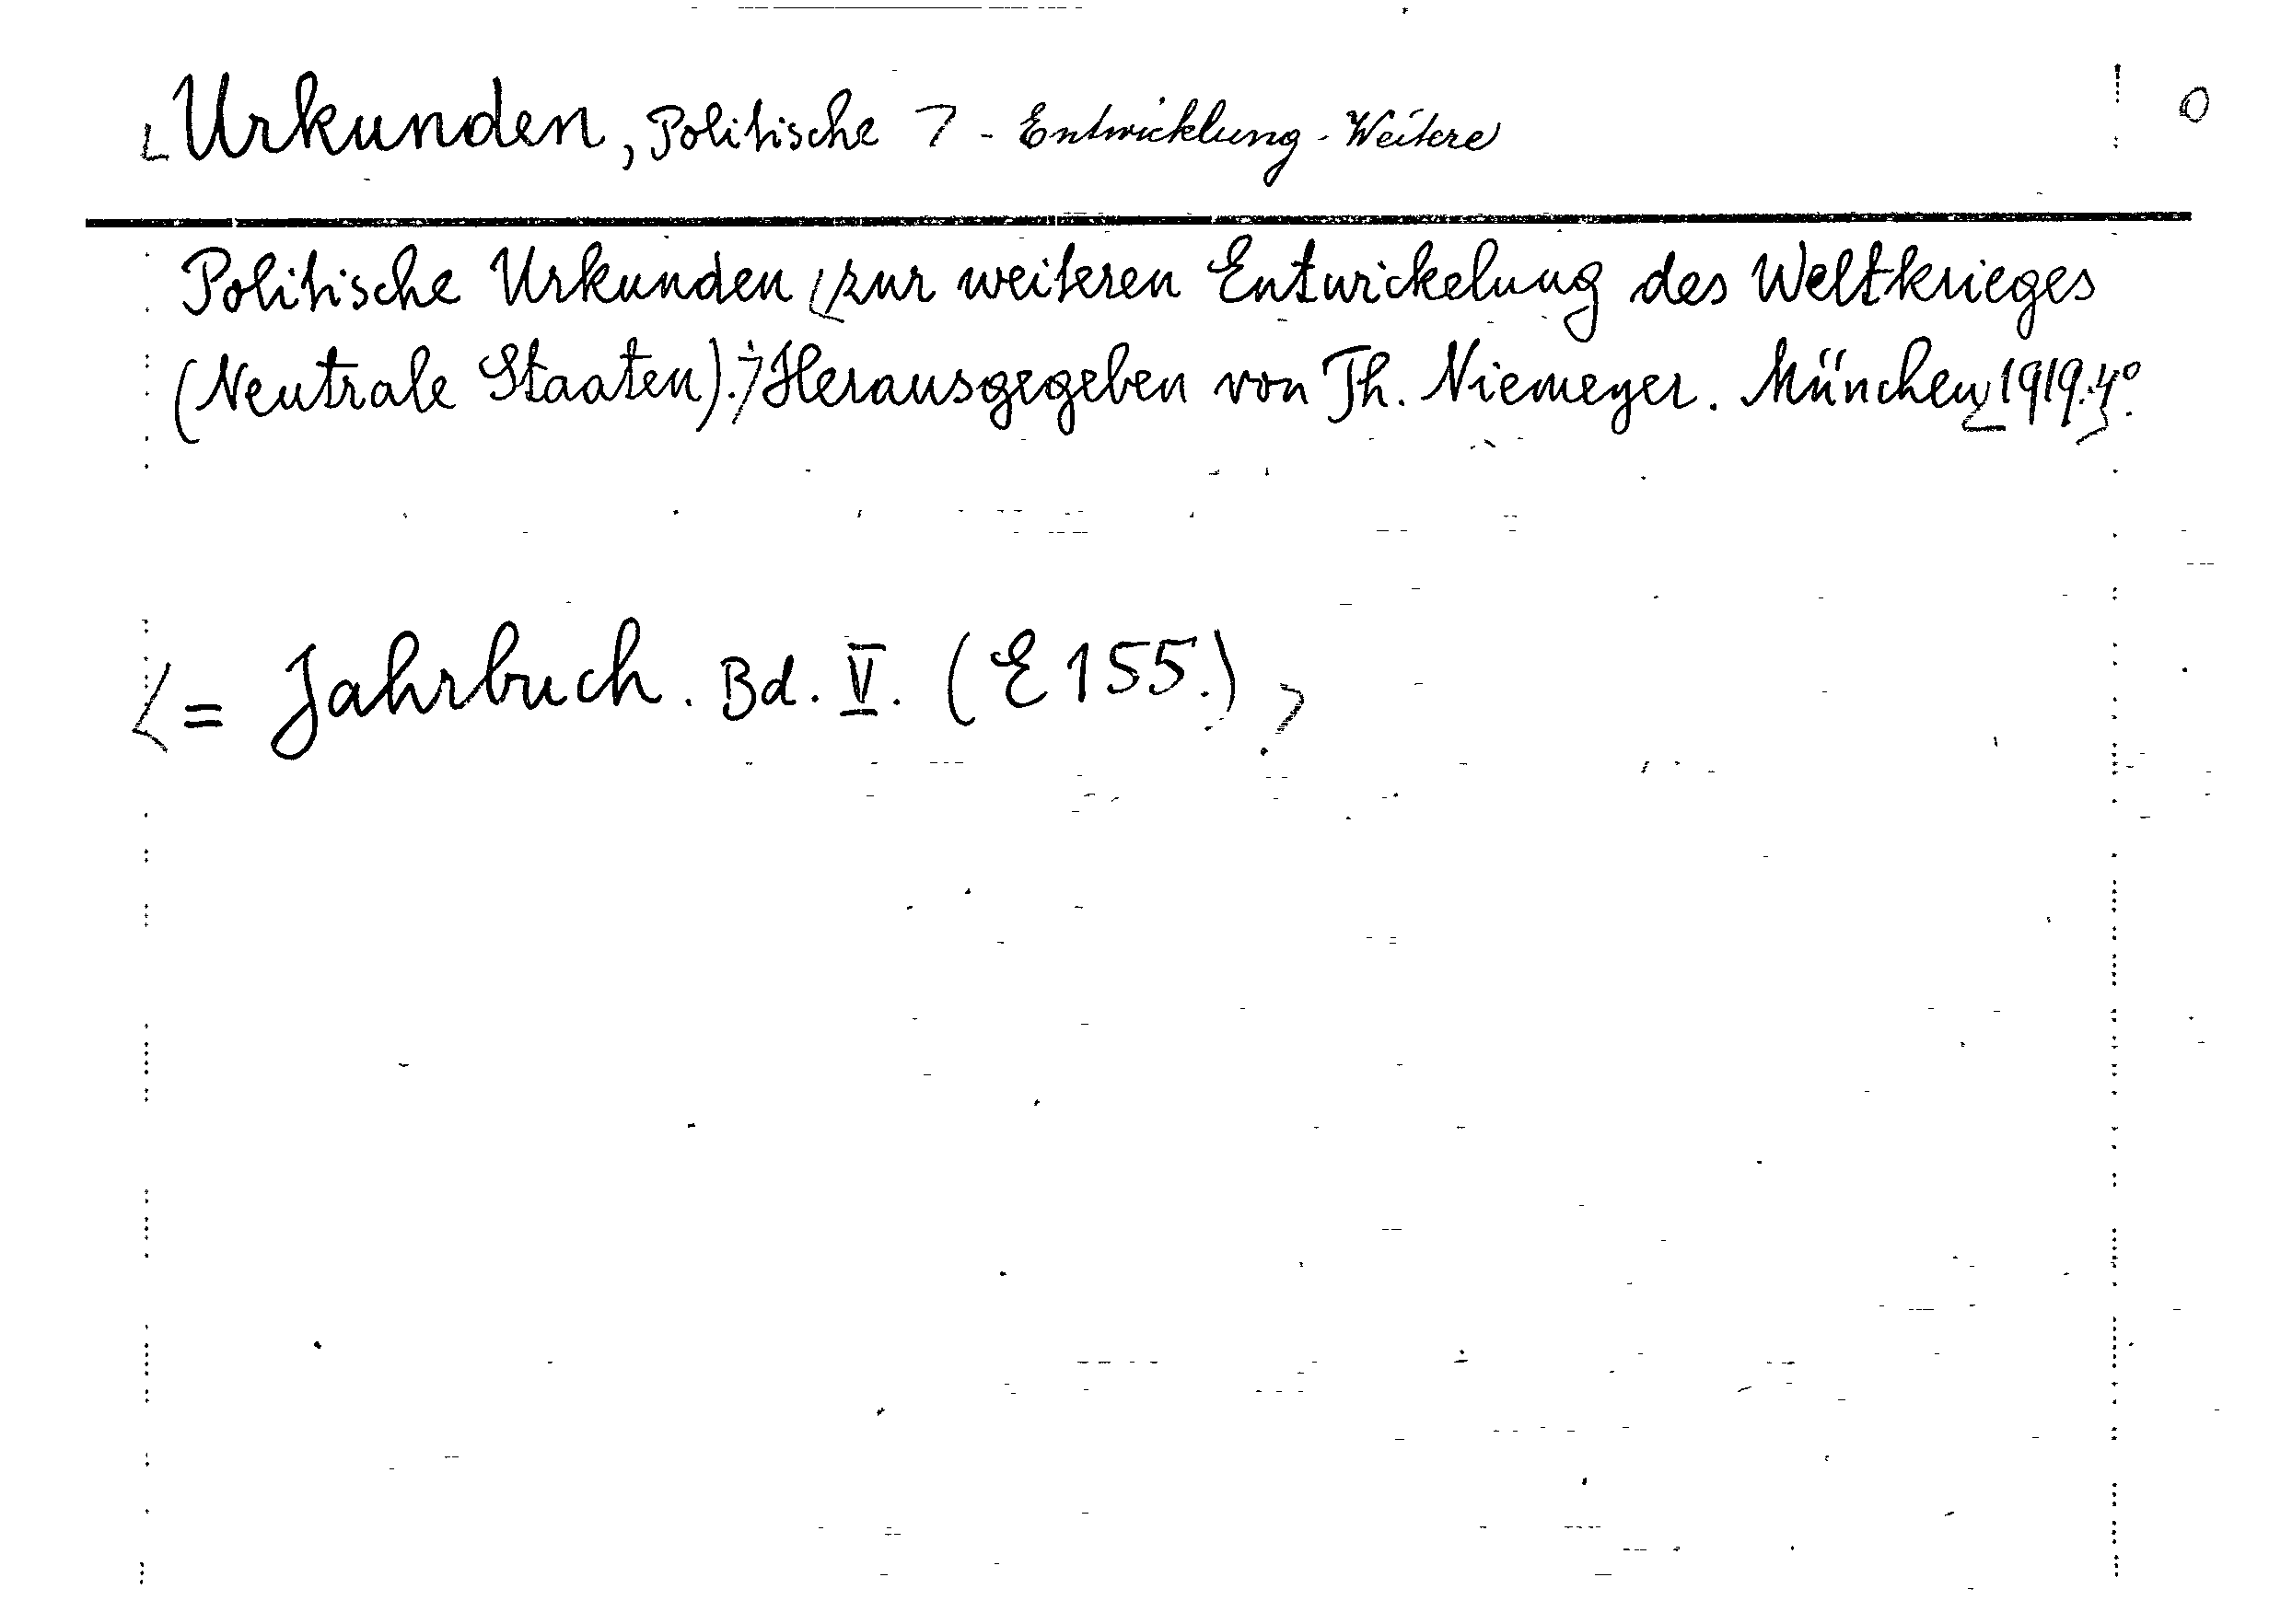 <Urkunden, Politische> - Entwicklung - Weitere O
Politische Urkunden <zur weiteren Entwickelung des Weltkrieges
(Neutrale Staaten).> Herausgegeben von Th. Niemeyer. München <1919. 4°.>
<= Jahrbuch. Bd. V. (E 155.)>